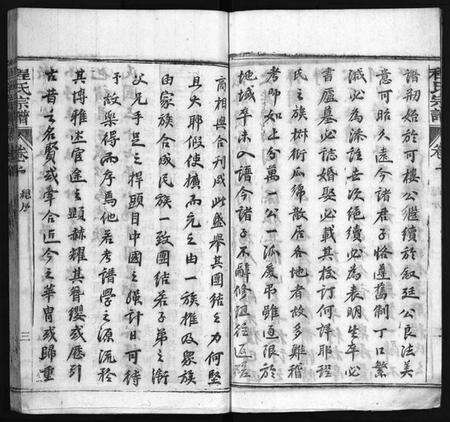 程氏宗譜 卷一
譜刱始於可樓公繼續於叙廷公良法美
意可昭久遠今諸君子恪遵舊制丁口繁
減必為添註去次絕續必為表明生卒必
書廬墓必誌婚娶必載其校訂何詳耶程
氏之族樹衍瓜綿散居各地者故多難稽
考即如上分萬一公一派慶弔雖通限於
地域卒未入譜今諸子不辭修阻往返塗
商相與合利成此盛舉其團結之力何堅
且大耶假使擴而充之由一族推及眾族
由家族合成民族一致團結若子弟之衛
父兄手足之捍頭目中國之強計日可待
予故樂得而序為他若考譜學之源流矜
其博雅述宦途之顯赫耀其簪纓或歷引
古昔之名賢或牽合近今之華冑或歸重
程氏宗譜 卷一 總序 三